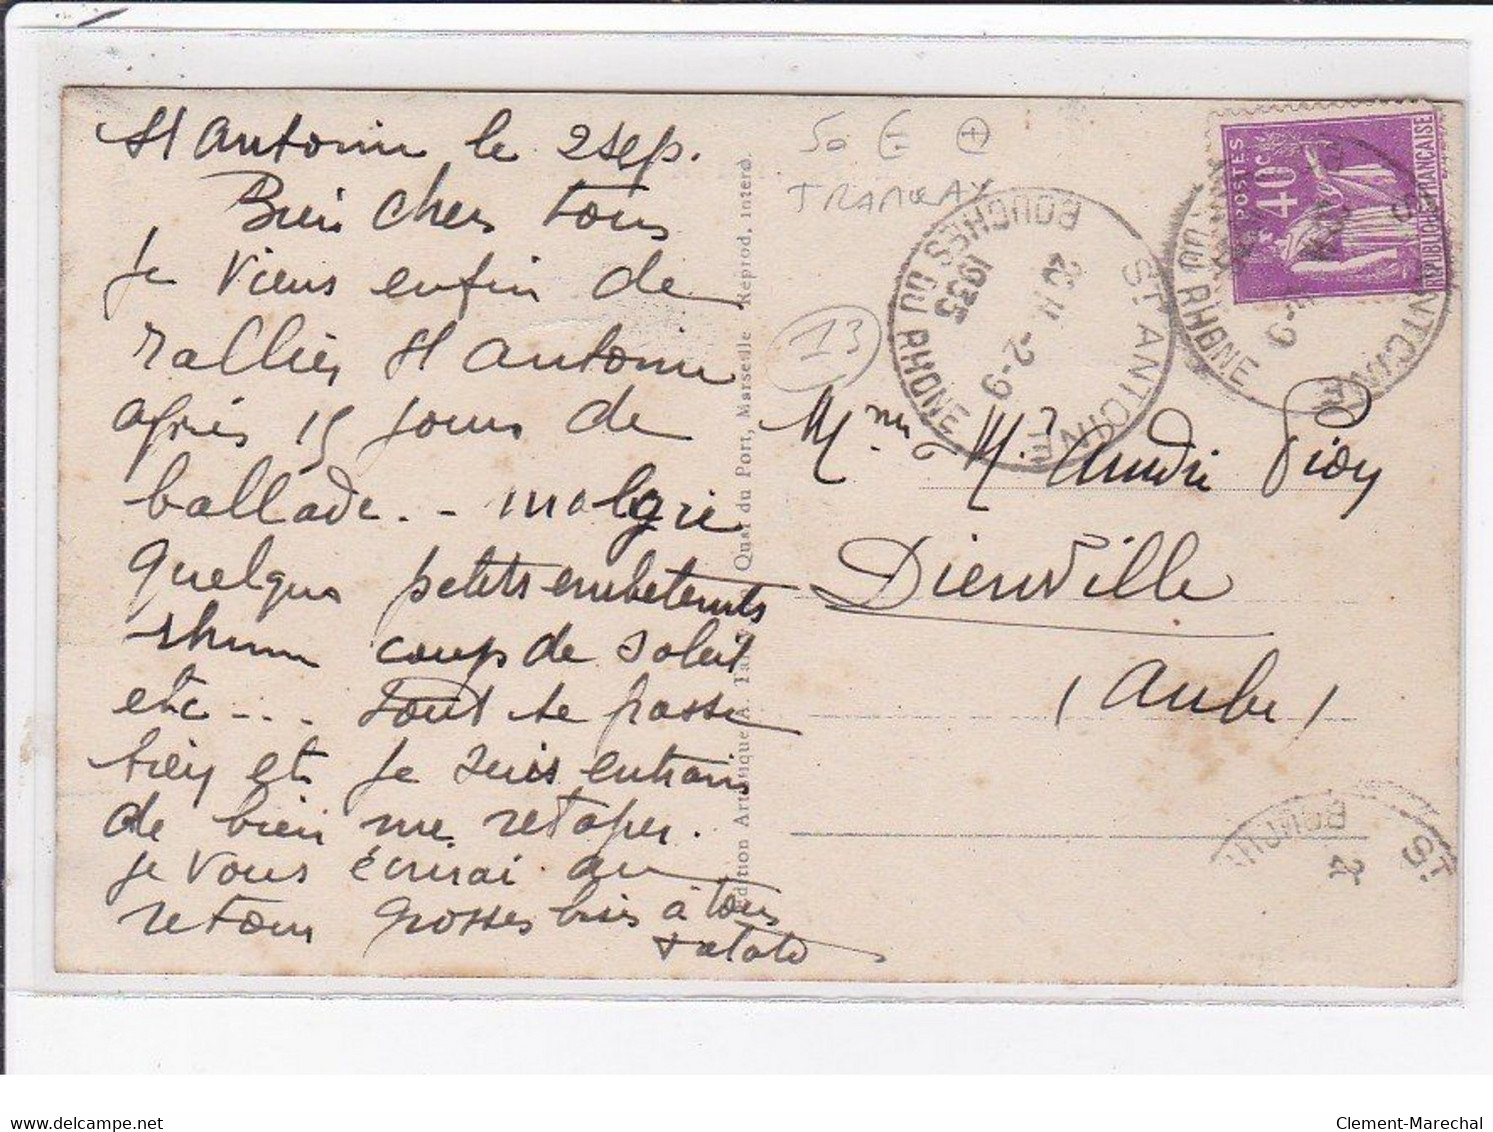 St Antoine le 2 sep.
Bien chers tous
je viens enfin de
rallier St Antoine
après 15 jours de
ballade. - malgré
quelques petits embetements
rhume coup de soleil
etc... tout se passe
bien et je suis entrain
de bien me retaper.
je vous écrirai au
retour grosses bises à tous
50 € +
TRAMWAY
13
Edition Artistique A. Quai du Port, Marseille Reprod. interd.
POSTES
40c
REPUBLIQUE FRANÇAISE
ST ANTOINE
20 H
2-9
1935
BOUCHES DU RHONE
ST ANTOINE
2-9
DU RHONE
Mme M. André
Dienville
(Aube)
ST.
BOUCH
2
www.delcampe.net
Clement-Marechal